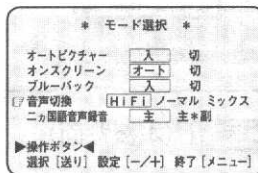 * モード選択 *
オートピクチャー 入 切
オンスクリーン オート 切
ブルーバック 入 切
☞音声切換 HiFi ノーマル ミックス
二ヵ国語音声録音 主 主*副
▶操作ボタン◀
選択 [送り] 設定 [−/+] 終了 [メニュー]